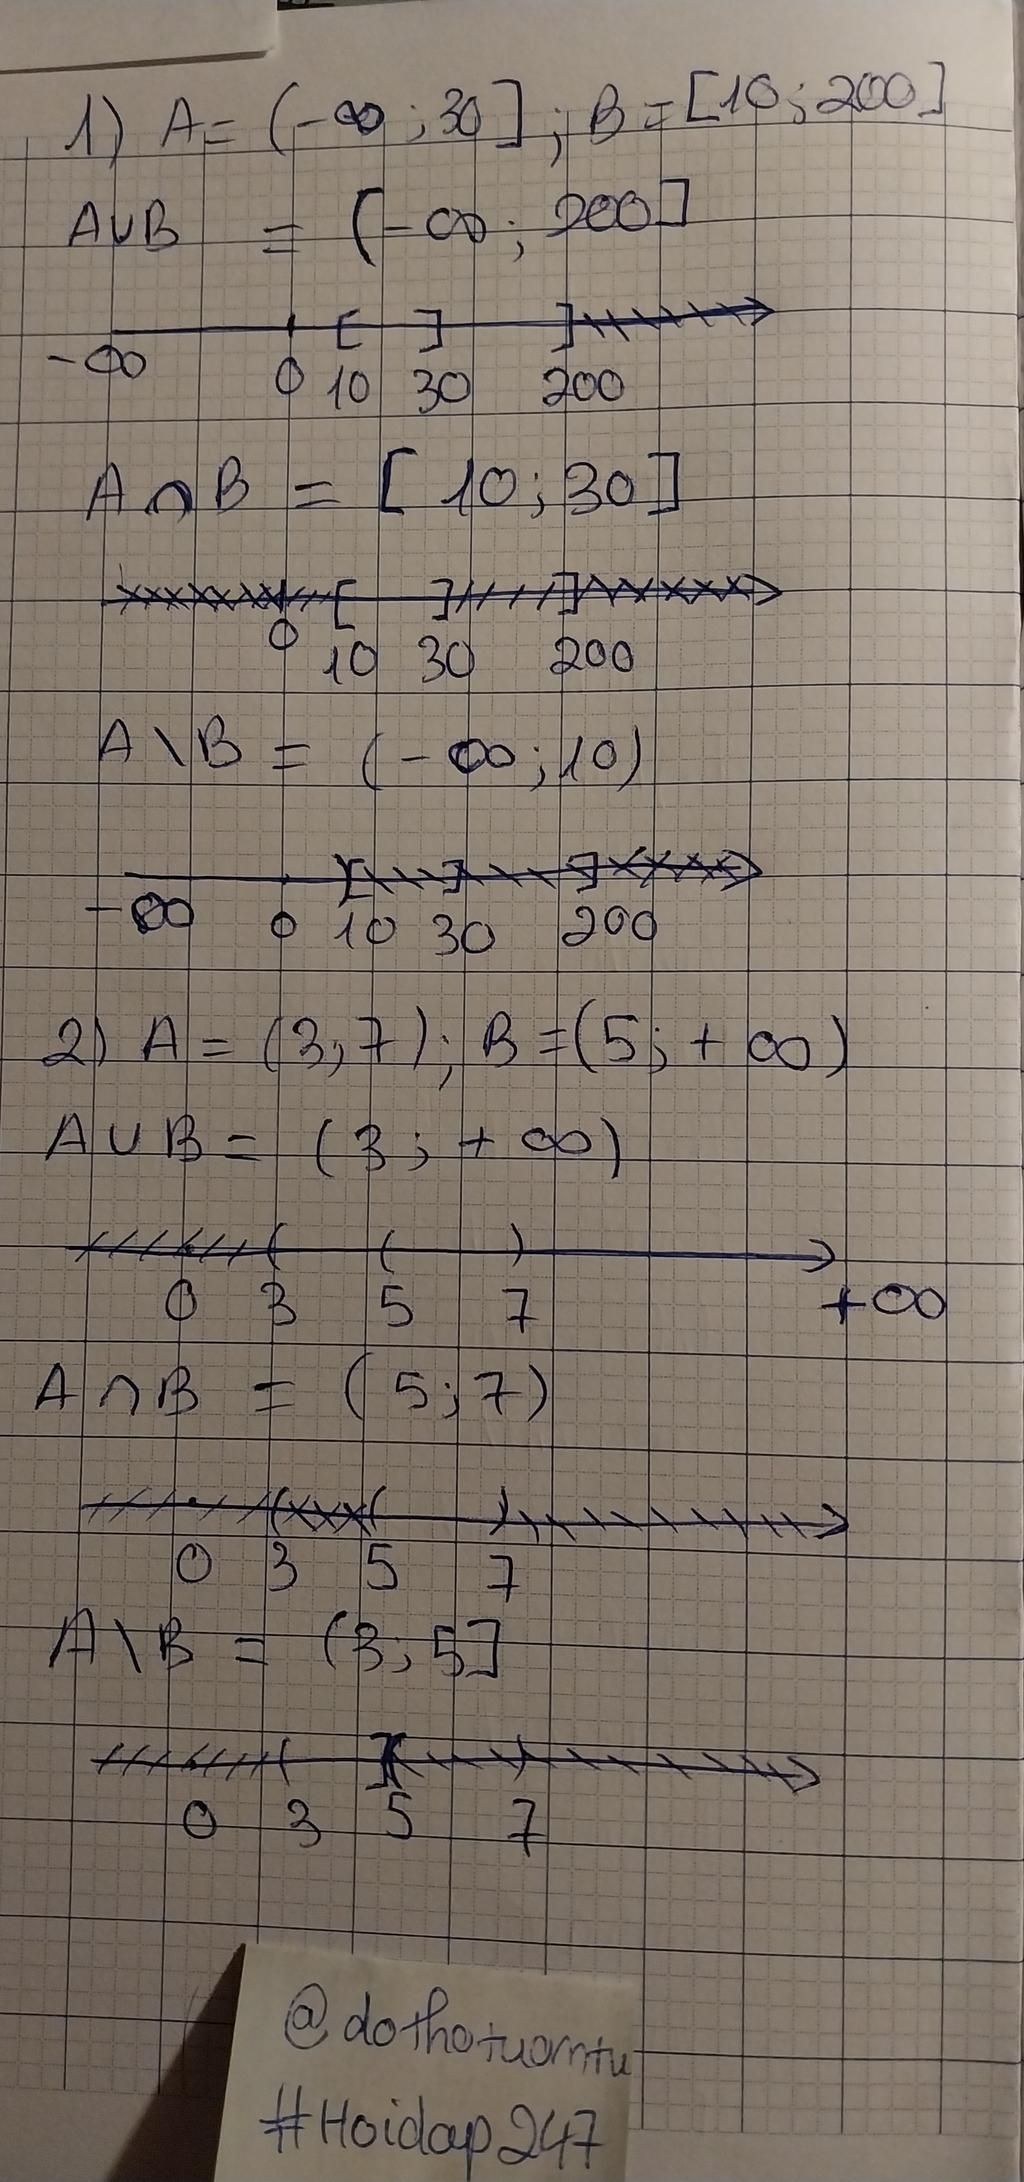 1) A = (-∞; 30]; B = [10; 200]
A∪B = (-∞; 200]
-∞ 0 10 30 200
A∩B = [10; 30]
0 10 30 200
A\B = (-∞; 10)
-∞ 0 10 30 200
2) A = (3; 7); B = (5; +∞)
A∪B = (3; +∞)
0 3 5 7 +∞
A∩B = (5; 7)
0 3 5 7
A\B = (3; 5]
0 3 5 7
@dothotuantu
#Hoidap247